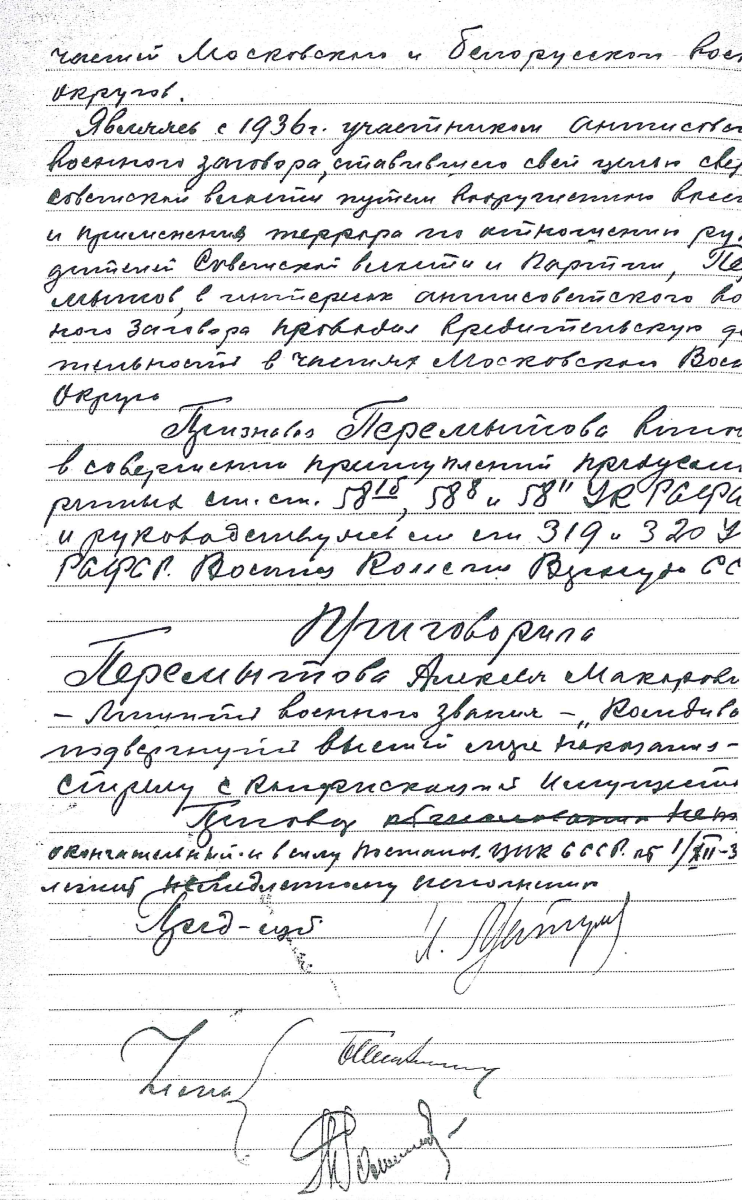 частей Московского и Белорусского воен
округов.
Являясь с 1936 г. участником антисовет
военного заговора, ставившего своей целью свер
советской власти путем вооруженного восст
и применения террора по отношению рук
дителей Советской власти и Партии, Пере
мытов, в интересах антисоветского во
ного заговора проводил вредительскую де
тельность в частях Московского Воен
Округа
Признавая Перемытова вин
в совершении преступлений предусмот
ренных ст.ст. 58 1б, 58 8 и 58 11 УК РСФС
и руководствуясь ст ст 319 и 320 У
РСФСР. Военная Коллегия Верхсуда СС
Приговорила
Перемытова Алексея Макарови
– Лишить военного звания – „Комдив
подвергнуть высшей мере наказания –
стрелу с конфискацией имущества
Приговор обжалованию не
окончательный и в силу постанов. ЦИК СССР. от 1/XII-3
лежит немедленному исполнению
Пред-щий
Члены